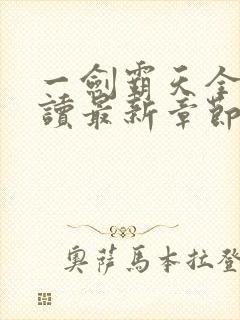 一劍霸天全
讀最新章節
奧薩馬本拉登